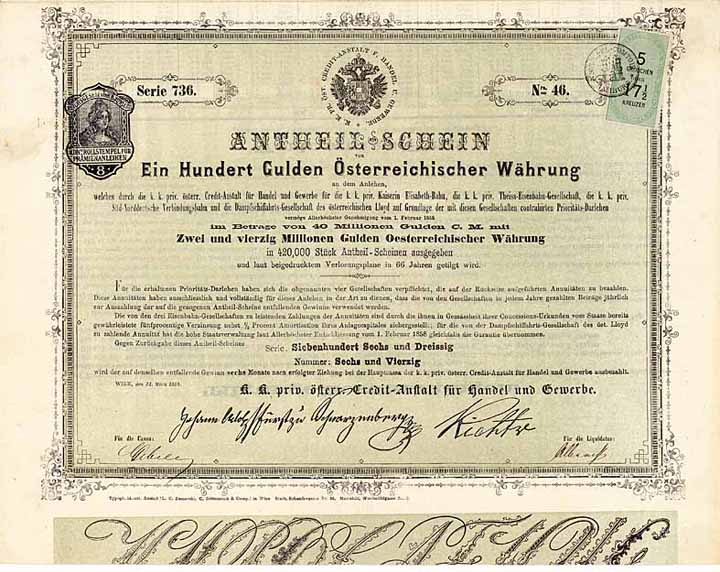 K. K. PR. ÖST. CREDIT-ANSTALT F. HANDEL U. GEWERBE.
Serie 736.
Nro 46.
5
17½
KREUZER
CONTROLLSTEMPEL FÜR
PRÄMIENANLEIHEN
8
ANTHEIL-SCHEIN
von
Ein Hundert Gulden Österreichischer Währung
an dem Anlehen,
welches durch die k. k. priv. österr. Credit-Anstalt für Handel und Gewerbe für die k. k. priv. Kaiserin Elisabeth-Bahn, die k. k. priv. Theiss-Eisenbahn-Gesellschaft, die k. k. priv.
Süd-Norddeutsche Verbindungsbahn und die Dampfschiffahrts-Gesellschaft des österreichischen Lloyd auf Grundlage der mit diesen Gesellschaften contrahirten Prioritäts-Darlehen
vermöge Allerhöchster Genehmigung vom 1. Februar 1858
im Betrage von 40 Millionen Gulden C. M. mit
Zwei und vierzig Millionen Gulden Oesterreichischer Währung
in 420,000 Stück Antheil-Scheinen ausgegeben
und laut beigedrucktem Verlosungsplane in 66 Jahren getilgt wird.
Für die erhaltenen Prioritäts-Darlehen haben sich die obgenannten vier Gesellschaften verpflichtet, die auf der Rückseite aufgeführten Annuitäten zu bezahlen.
Diese Annuitäten haben ausschliesslich und vollständig für dieses Anlehen in der Art zu dienen, dass die von den Gesellschaften in jedem Jahre gezahlten Beträge jährlich
zur Auszahlung der auf die gezogenen Antheil-Scheine entfallenden Gewinne verwendet werden.
Die von den drei Eisenbahn-Gesellschaften zu leistenden Zahlungen der Annuitäten sind durch die ihnen in Gemässheit ihrer Concessions-Urkunden vom Staate bereits
gewährleistete fünfprocentige Verzinsung nebst ½ Procent Amortisation ihres Anlagecapitales sichergestellt; für die von der Dampfschiffahrts-Gesellschaft des öst. Lloyd
zu zahlende Annuität hat die hohe Staatsverwaltung laut Allerhöchster Entschliessung vom 1. Februar 1858 gleichfalls die Garantie übernommen.
Gegen Zurückgabe dieses Antheil-Scheines
Serie: Siebenhundert Sechs und Dreissig
Nummer: Sechs und Vierzig
wird der auf denselben entfallende Gewinn sechs Monate nach erfolgter Ziehung bei der Hauptcassa der k. k. priv. österr. Credit-Anstalt für Handel und Gewerbe ausbezahlt.
WIEN, den 31. März 1858.
K. K. priv. österr. Credit-Anstalt für Handel und Gewerbe.
Johann Adolf Fürst zu Schwarzenberg
Richter
Für die Cassa:
Für die Liquidatur: